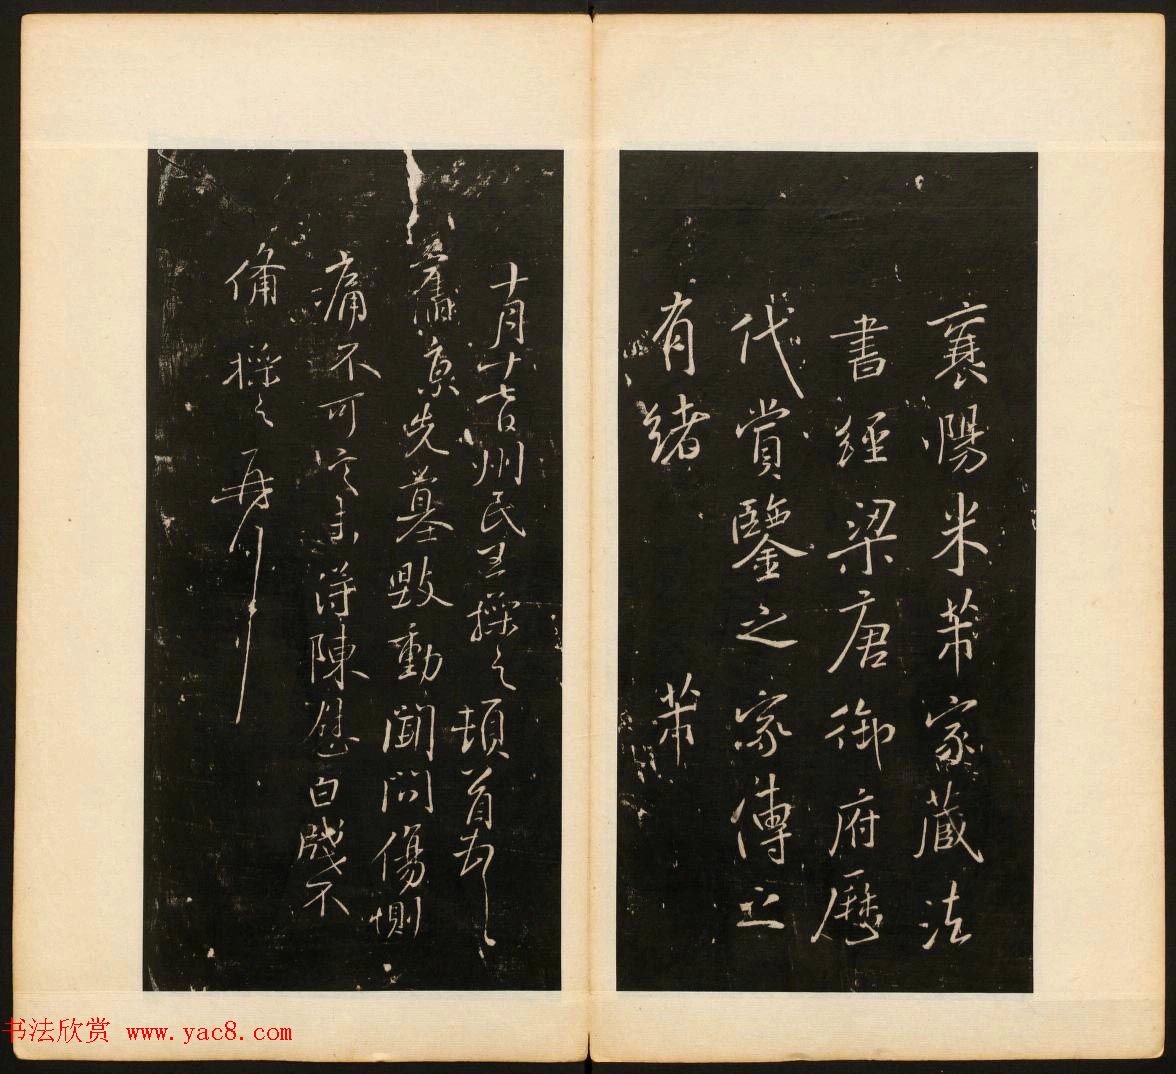 襄陽米芾家藏法
書經梁唐御府歷
代賞鑒之家傳之
有緒 芾
十月十七日州民王操之頓首
舊京先墓毀動聞問傷惻
痛不可言未得陳慰白牋不
備操之再拜
书法欣赏 www.yac8.com